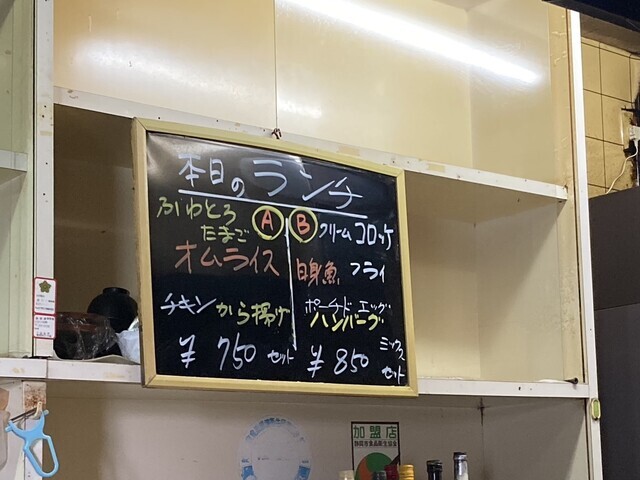 本日のランチ
A
ふわとろ
たまご
オムライス
チキン から揚げ
¥750 セット
B
クリームコロッケ
白身魚 フライ
ポーチドエッグ
ハンバーグ
¥850 ミックスセット
加盟店